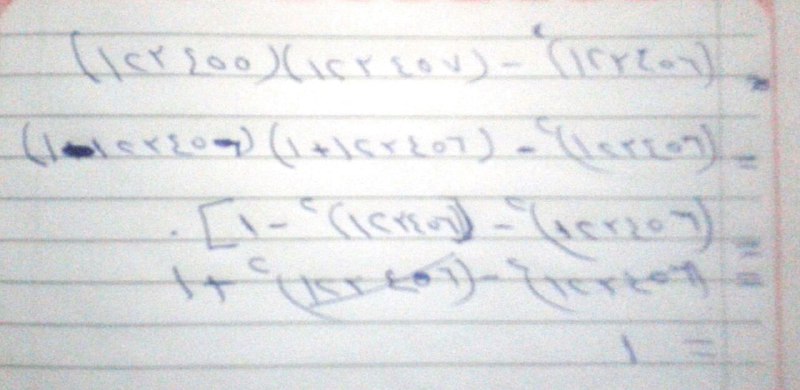 = (١٢٣٤٥٦)^٢ - (١٢٣٤٥٧)(١٢٣٤٥٥)
= (١٢٣٤٥٦)^٢ - (١٢٣٤٥٦ + ١)(١٢٣٤٥٦ - ١)
= (١٢٣٤٥٦)^٢ - (١٢٣٤٥٦)^٢ - ١]
= (١٢٣٤٥٦)^٢ - (١٢٣٤٥٦)^٢ + ١
= ١